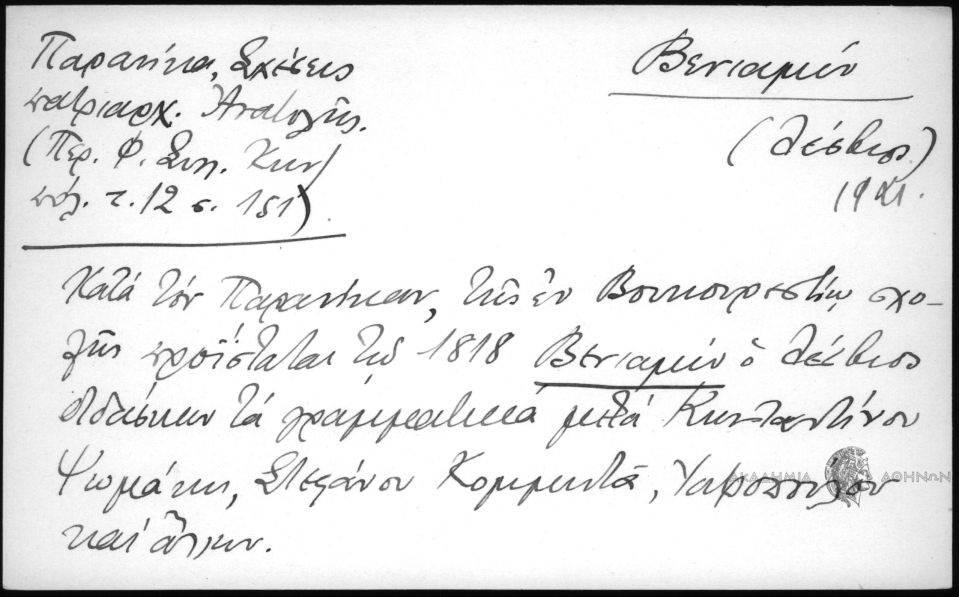 Παρανίκα, Σχέσεις
πατριαρχ. Ἀνατολῆς.
(Περ. Φ. Συλ. Κων/
πόλ. τ. 12 σ. 151)
Βενιαμίν
(Λέσβιος)
Κατά τόν Παρανίκαν, τῆς ἐν Βουκουρεστίῳ σχο-
λῆς προΐσταται τῷ 1818 Βενιαμίν ὁ Λέσβιος
διδάσκων τά γραμματικά μετά Κωνσταντίνου
Ψωμάκη, Στεφάνου Κομμητᾶ,
καί ἄλλων.
ΑΚΑΔΗΜΙΑ ΑΘΗΝΩΝ